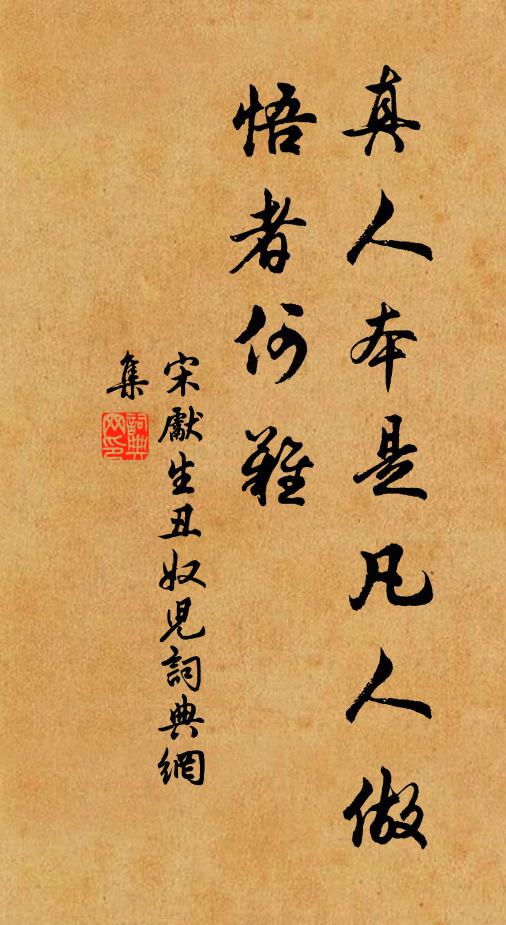 真人本是凡人做
悟者何難
宋獻生丑奴兒詞典網
集
詞典
网印